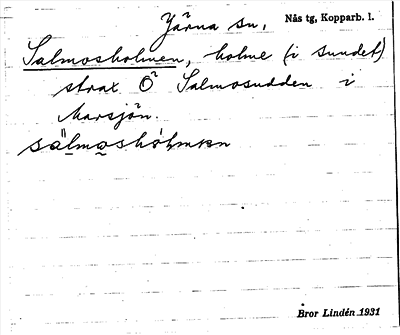 Järna sn. Nås tg, Kopparb. l.
Salmosholmen, holme (i sundet)
strax Ö Salmosudden i
Marsjön.
Bror Lindén 1931